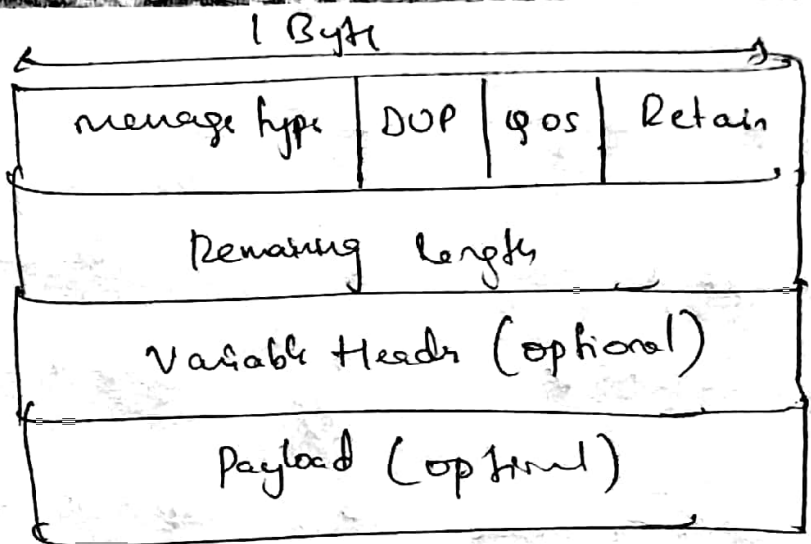 1 Byte
message type DUP QOS Retain
Remaining length
Variable Header (optional)
Payload (optional)